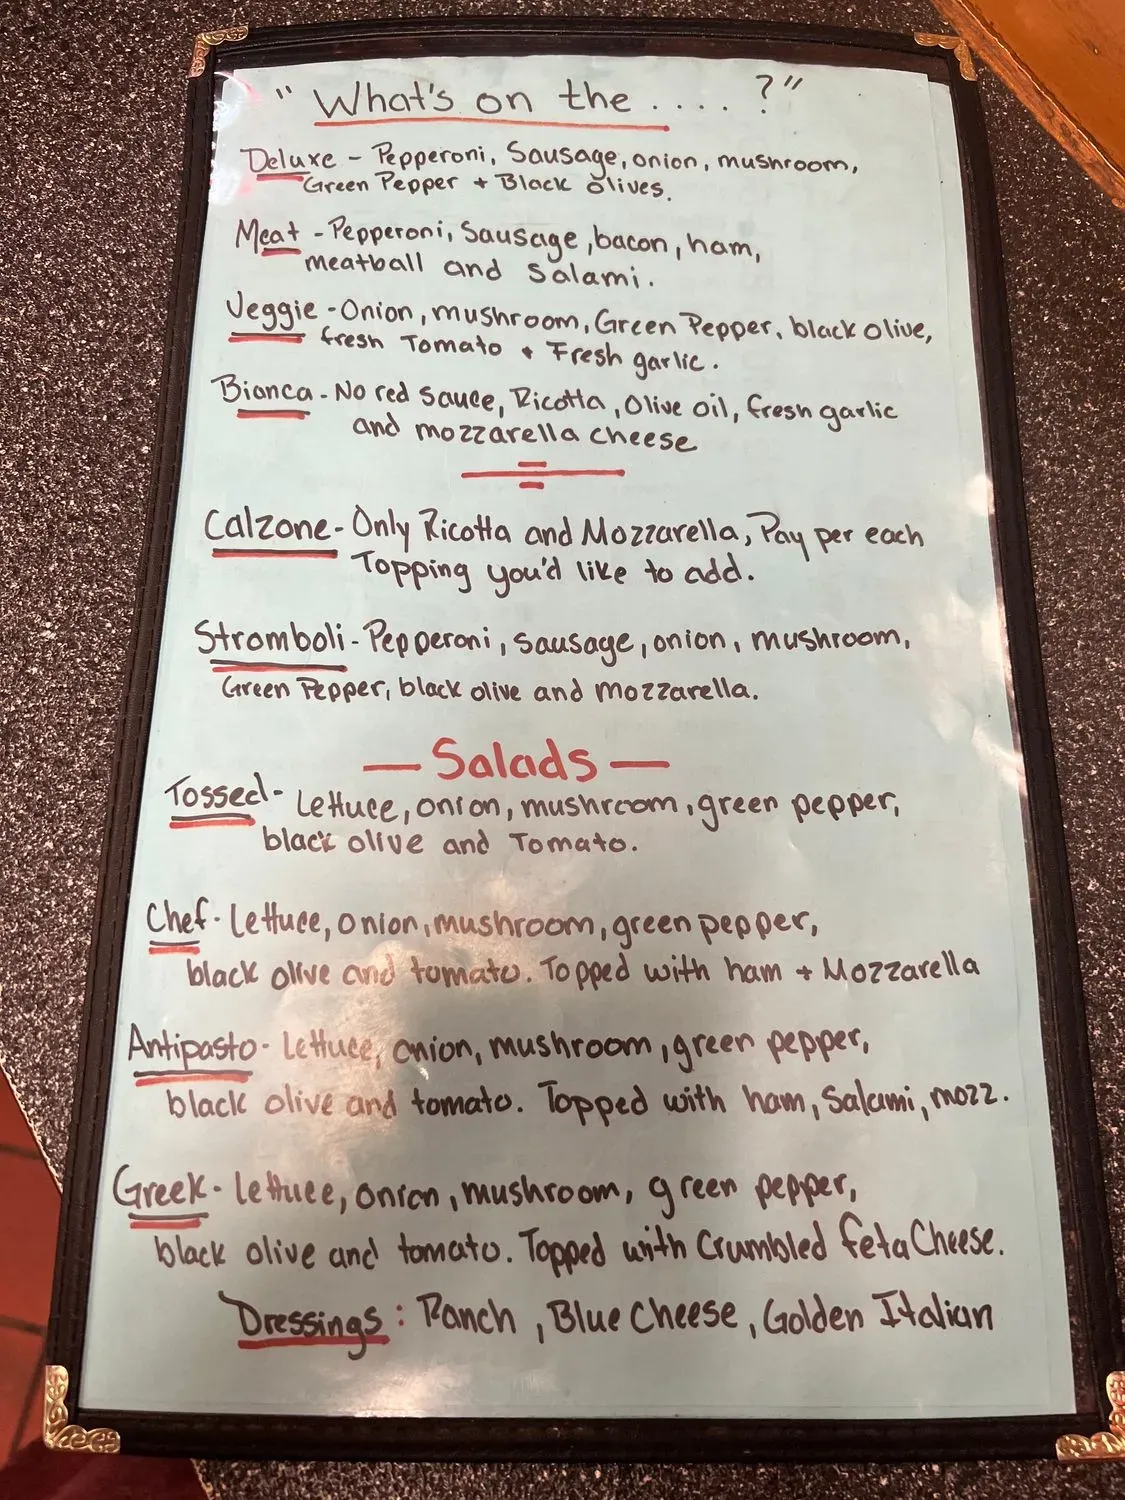 "What's on the ....?"
Deluxe - Pepperoni, Sausage, onion, mushroom,
Green Pepper + Black olives.
Meat - Pepperoni, Sausage, bacon, ham,
meatball and Salami.
Veggie - Onion, mushroom, Green Pepper, black olive,
fresh Tomato + Fresh garlic.
Bianca - No red sauce, Ricotta, Olive oil, fresh garlic
and mozzarella cheese
Calzone - Only Ricotta and Mozzarella, Pay per each
Topping you'd like to add.
Stromboli - Pepperoni, sausage, onion, mushroom,
Green Pepper, black olive and mozzarella.
— Salads —
Tossed - Lettuce, onion, mushroom, green pepper,
black olive and Tomato.
Chef - Lettuce, onion, mushroom, green pepper,
black olive and tomato. Topped with ham + Mozzarella
Antipasto - Lettuce, onion, mushroom, green pepper,
black olive and tomato. Topped with ham, Salami, mozz.
Greek - lettuce, onion, mushroom, green pepper,
black olive and tomato. Topped with Crumbled feta Cheese.
Dressings: Ranch, Blue Cheese, Golden Italian